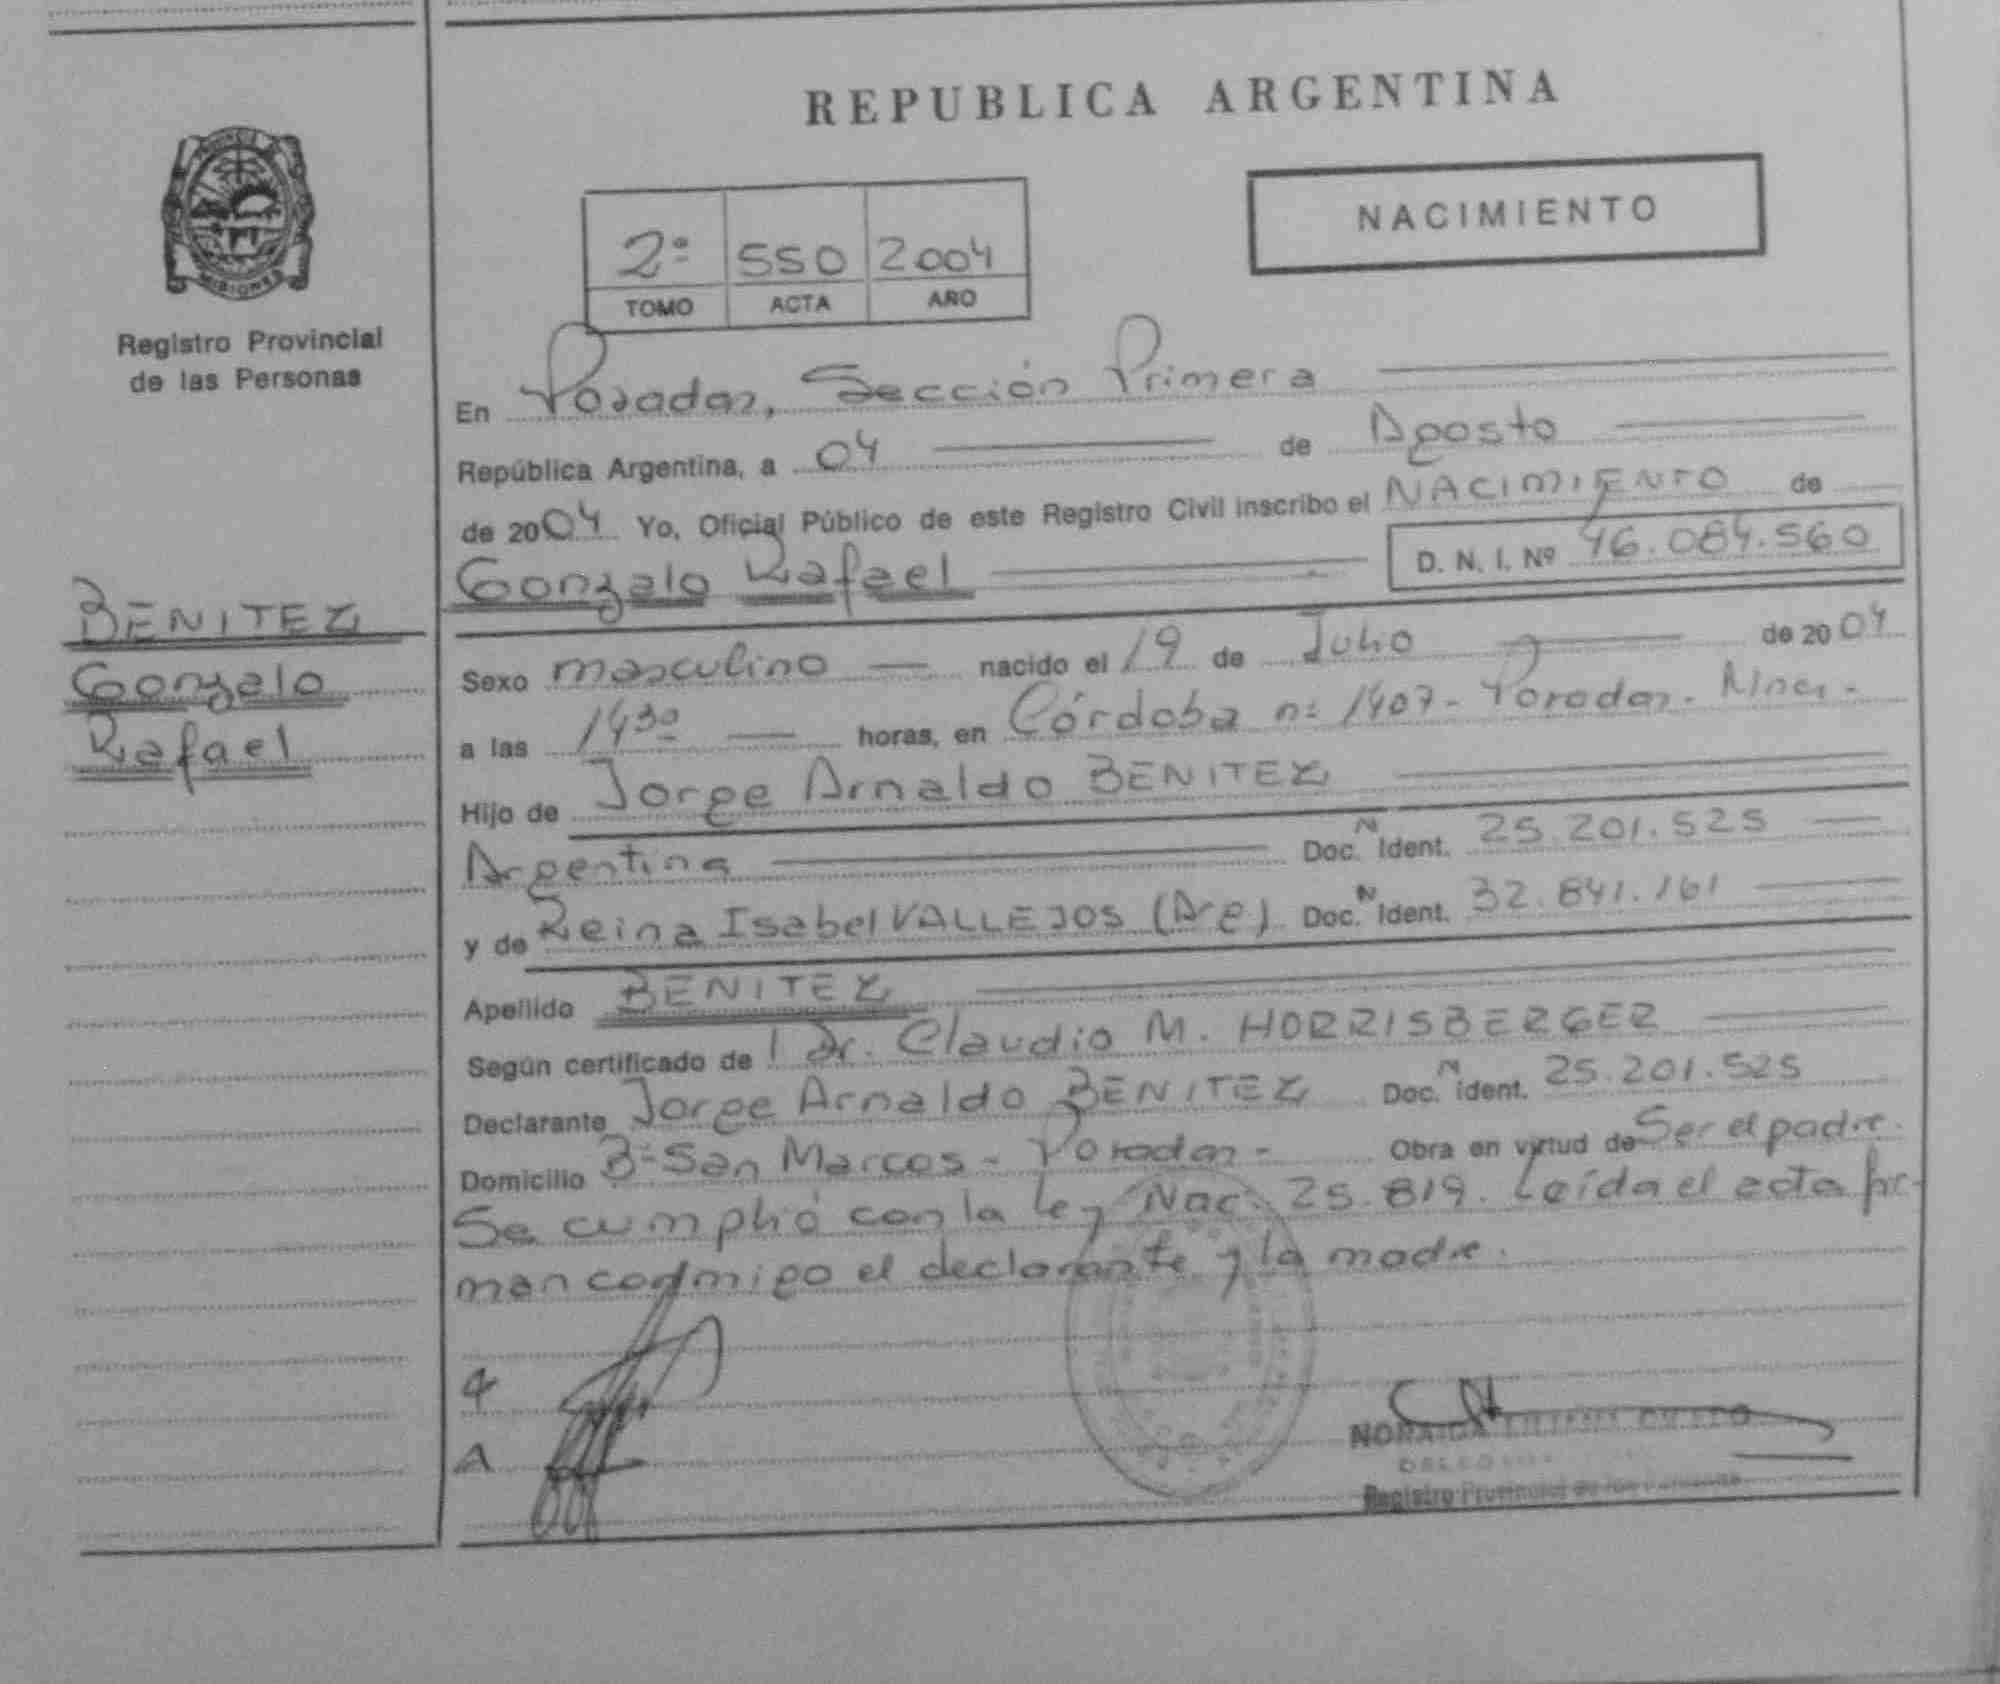 REPUBLICA ARGENTINA
NACIMIENTO
2º 550 2004
TOMO ACTA AÑO
PROVINCIA
MISIONES
Registro Provincial
de las Personas
BENITEZ
Gonzalo
Rafael
En Posadas, Sección Primera
República Argentina, a 04 de Agosto
de 2004 Yo, Oficial Público de este Registro Civil inscribo el NACIMIENTO de
Gonzalo Rafael D. N. I. Nº 46.084.560
Sexo masculino nacido el 19 de Julio de 2004
a las 14³⁰ horas, en Córdoba nº 1407 - Posadas - Mnes -
Hijo de Jorge Arnaldo BENITEZ
Argentina Doc. N Ident. 25.201.525
y de Reina Isabel VALLEJOS (Arg) Doc. N Ident. 32.841.161
Apellido BENITEZ
Según certificado de Dr. Claudio M. HORRISBERGER
Declarante Jorge Arnaldo BENITEZ Doc. N Ident. 25.201.525
Domicilio Bº San Marcos - Posadas - Obra en virtud de Ser el padre.
Se cumplió con la ley Nac. 25.819. Leída el acta fir-
man conmigo el declarante y la madre.
Registro Provincial de las Personas